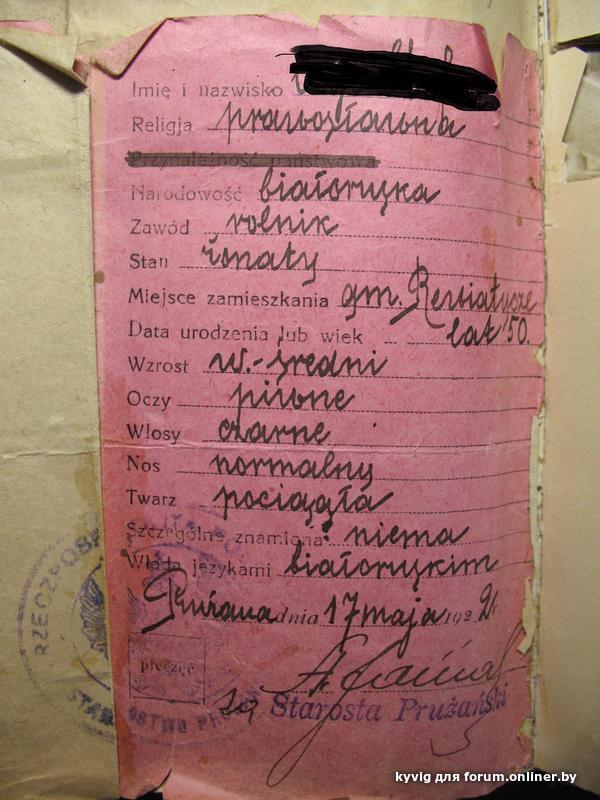 Imię i nazwisko
Religja prawosławna
Przynależność państwowa
Narodowość białoruska
Zawód rolnik
Stan żonaty
Miejsce zamieszkania gm. Rewiatycze
Data urodzenia lub wiek lat 50.
Wzrost w.-średni
Oczy piwne
Włosy czarne
Nos normalny
Twarz pociągła
Szczególne znamiona: niema
Włada językami białoruskim
Prużana dnia 17 maja 192
pieczęć
RZECZPOSP
STAROSTWO PRU
za Starosta Prużański
kyvig для forum.onliner.by